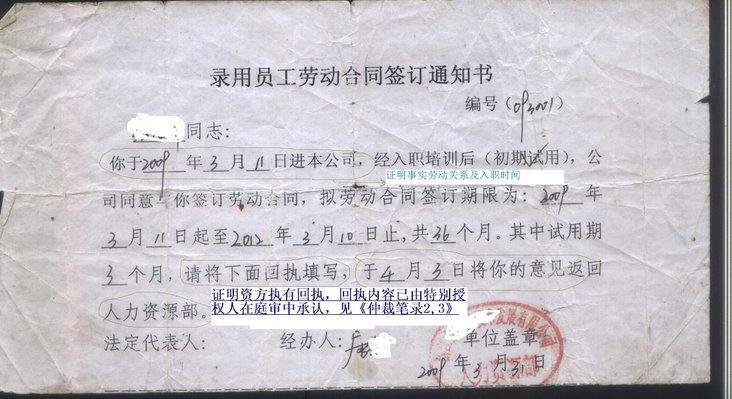 录用员工劳动合同签订通知书
编号(093001)
同志:
你于2009年3月11日进本公司,经入职培训后(初期试用),公
证明事实劳动关系及入职时间
司同意与你签订劳动合同,拟劳动合同签订期限为:2009年
3月11日起至2012年3月10日止,共36个月。其中试用期
3个月,请将下面回执填写,于4月3日将你的意见返回
人力资源部。
证明资方执有回执,回执内容已由特别授
权人在庭审中承认,见《仲裁笔录2,3》
法定代表人: 经办人: 单位盖章
2009年3月31日
发展有限公司
人力资源部